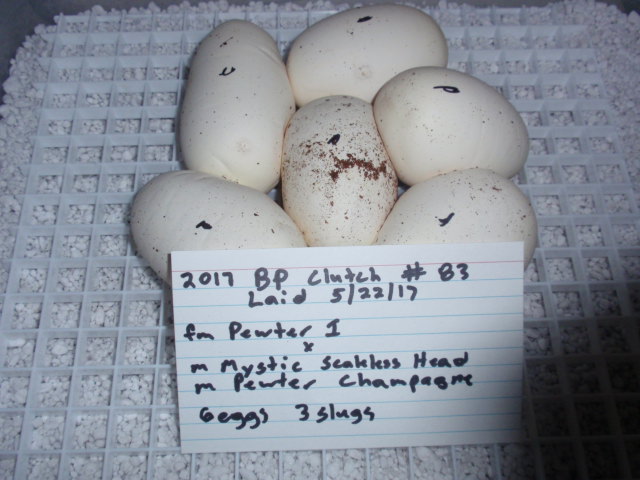 2017 BP Clutch # 83
Laid 5/22/17
fm Pewter I
x
m Mystic Scaleless Head
m Pewter Champagne
6 eggs 3 slugs